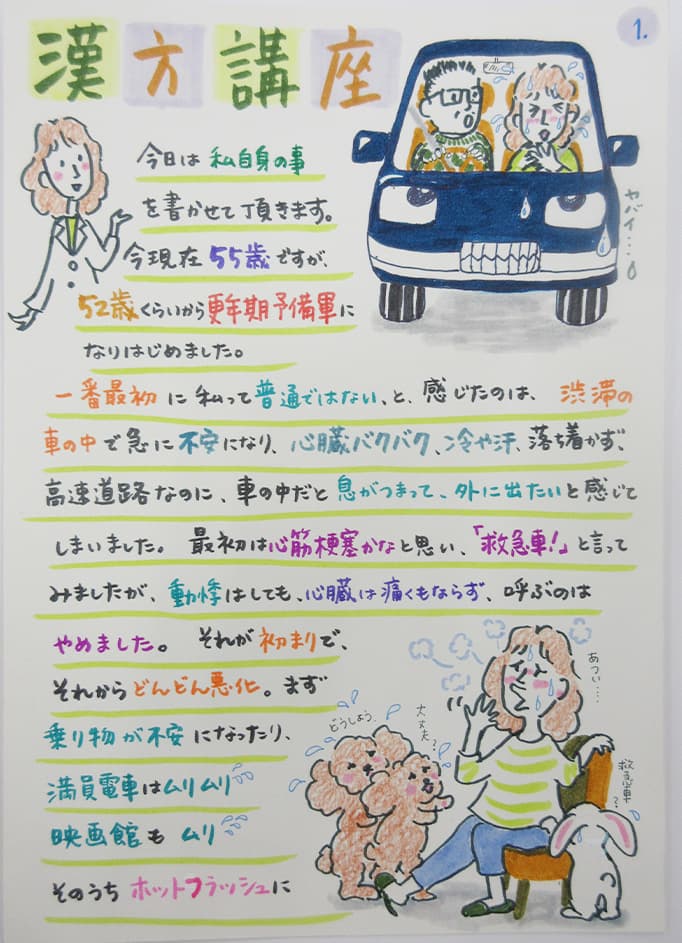 1.
漢方講座
今日は私自身の事
を書かせて頂きます。
今現在55歳ですが、
52歳くらいから更年期予備軍に
なりはじめました。
ヤバイ…
一番最初に私って普通ではない、と、感じたのは、渋滞の
車の中で急に不安になり、心臓バクバク、冷や汗、落ち着かず、
高速道路なのに、車の中だと息がつまって、外に出たいと感じて
しまいました。最初は心筋梗塞かなと思い、「救急車!」と言って
みましたが、動悸はしても、心臓は痛くもならず、呼ぶのは
やめました。それが初まりで、
それからどんどん悪化。まず
乗り物が不安になったり、
満員電車はムリムリ
映画館もムリ
そのうちホットフラッシュに
あつい…
どうしよう
大丈夫?
救急車?